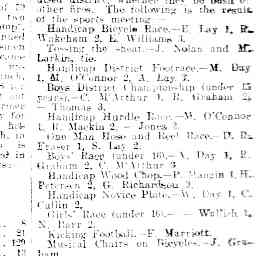 other fires. The following is the result
of the sports meeting:—
Handicap Bicycle Race.—E. Lay 1, R.
Wakeham 2, E. Williams 3.
Tossing the sheaf.—J. Nolan and M.
Larkin, tie.
Handicap District Footrace.—M. Day
1, M. O'Connor 2, A. Lay 3.
Boys District Championship (under 15
years).—C. M'Arthur 1, R. Graham 2,
— Thomas 3.
Handicap Hurdle Race.—M. O'Connor
1, R. Mackin 2, — Jones 3.
One Man Hose and Reel Race.—D. R.
Fraser 1, S. Lay 2.
Boys' Race (under 16).—A. Day 1, R.
Graham 2, C. M'Arthur 3.
Handicap Wood Chop.—P. Mangin 1, H.
Petersen 2, G. Richardson 3.
Handicap Novice Plate.—W. Day 1, C.
Cullin 2,
Girls' Race (under 16).— — 1,
N. Barr 2.
Kicking Football.—F. Marriott.
Musical Chairs on Bicycles.—J. Gra-
ham.